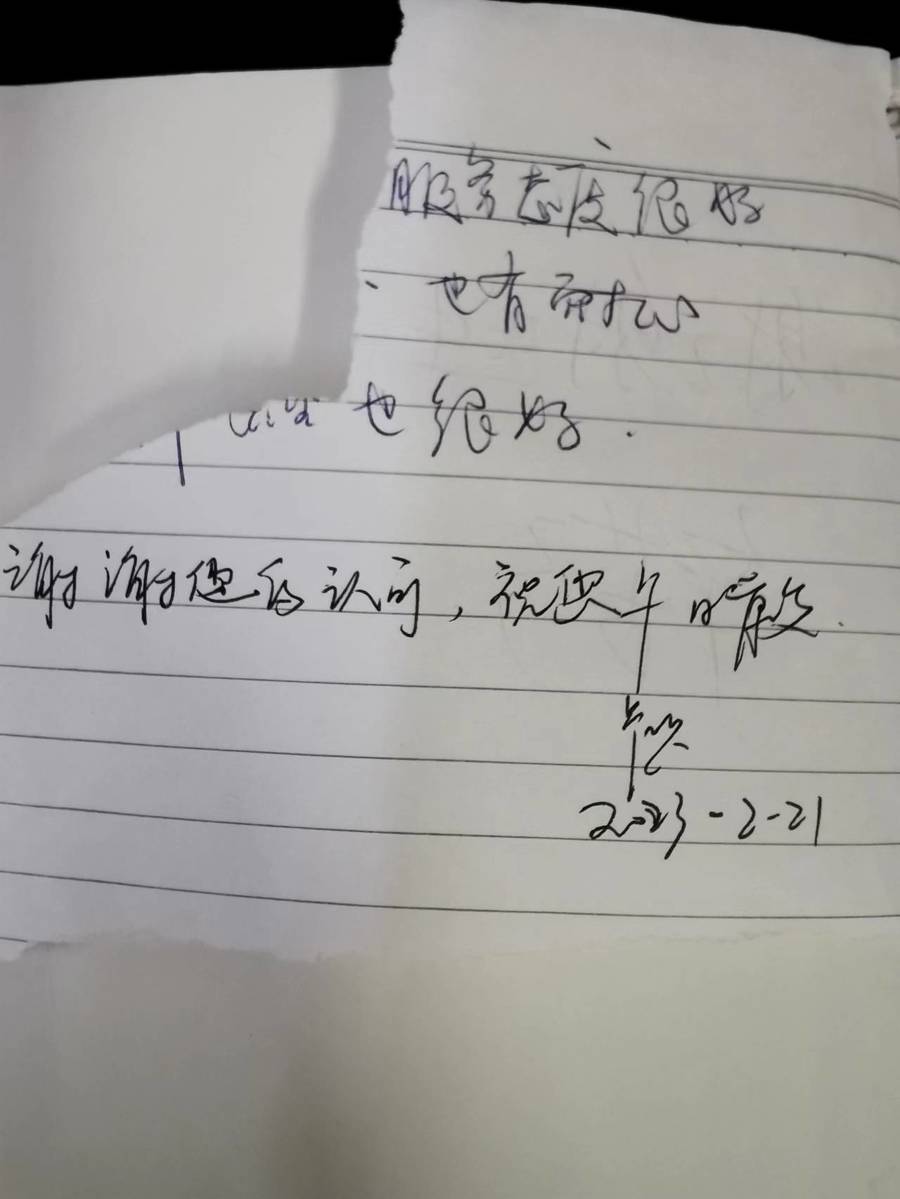 服务态度很好
、也有耐心
也很好.
谢谢您的认可,祝您
2023-2-21